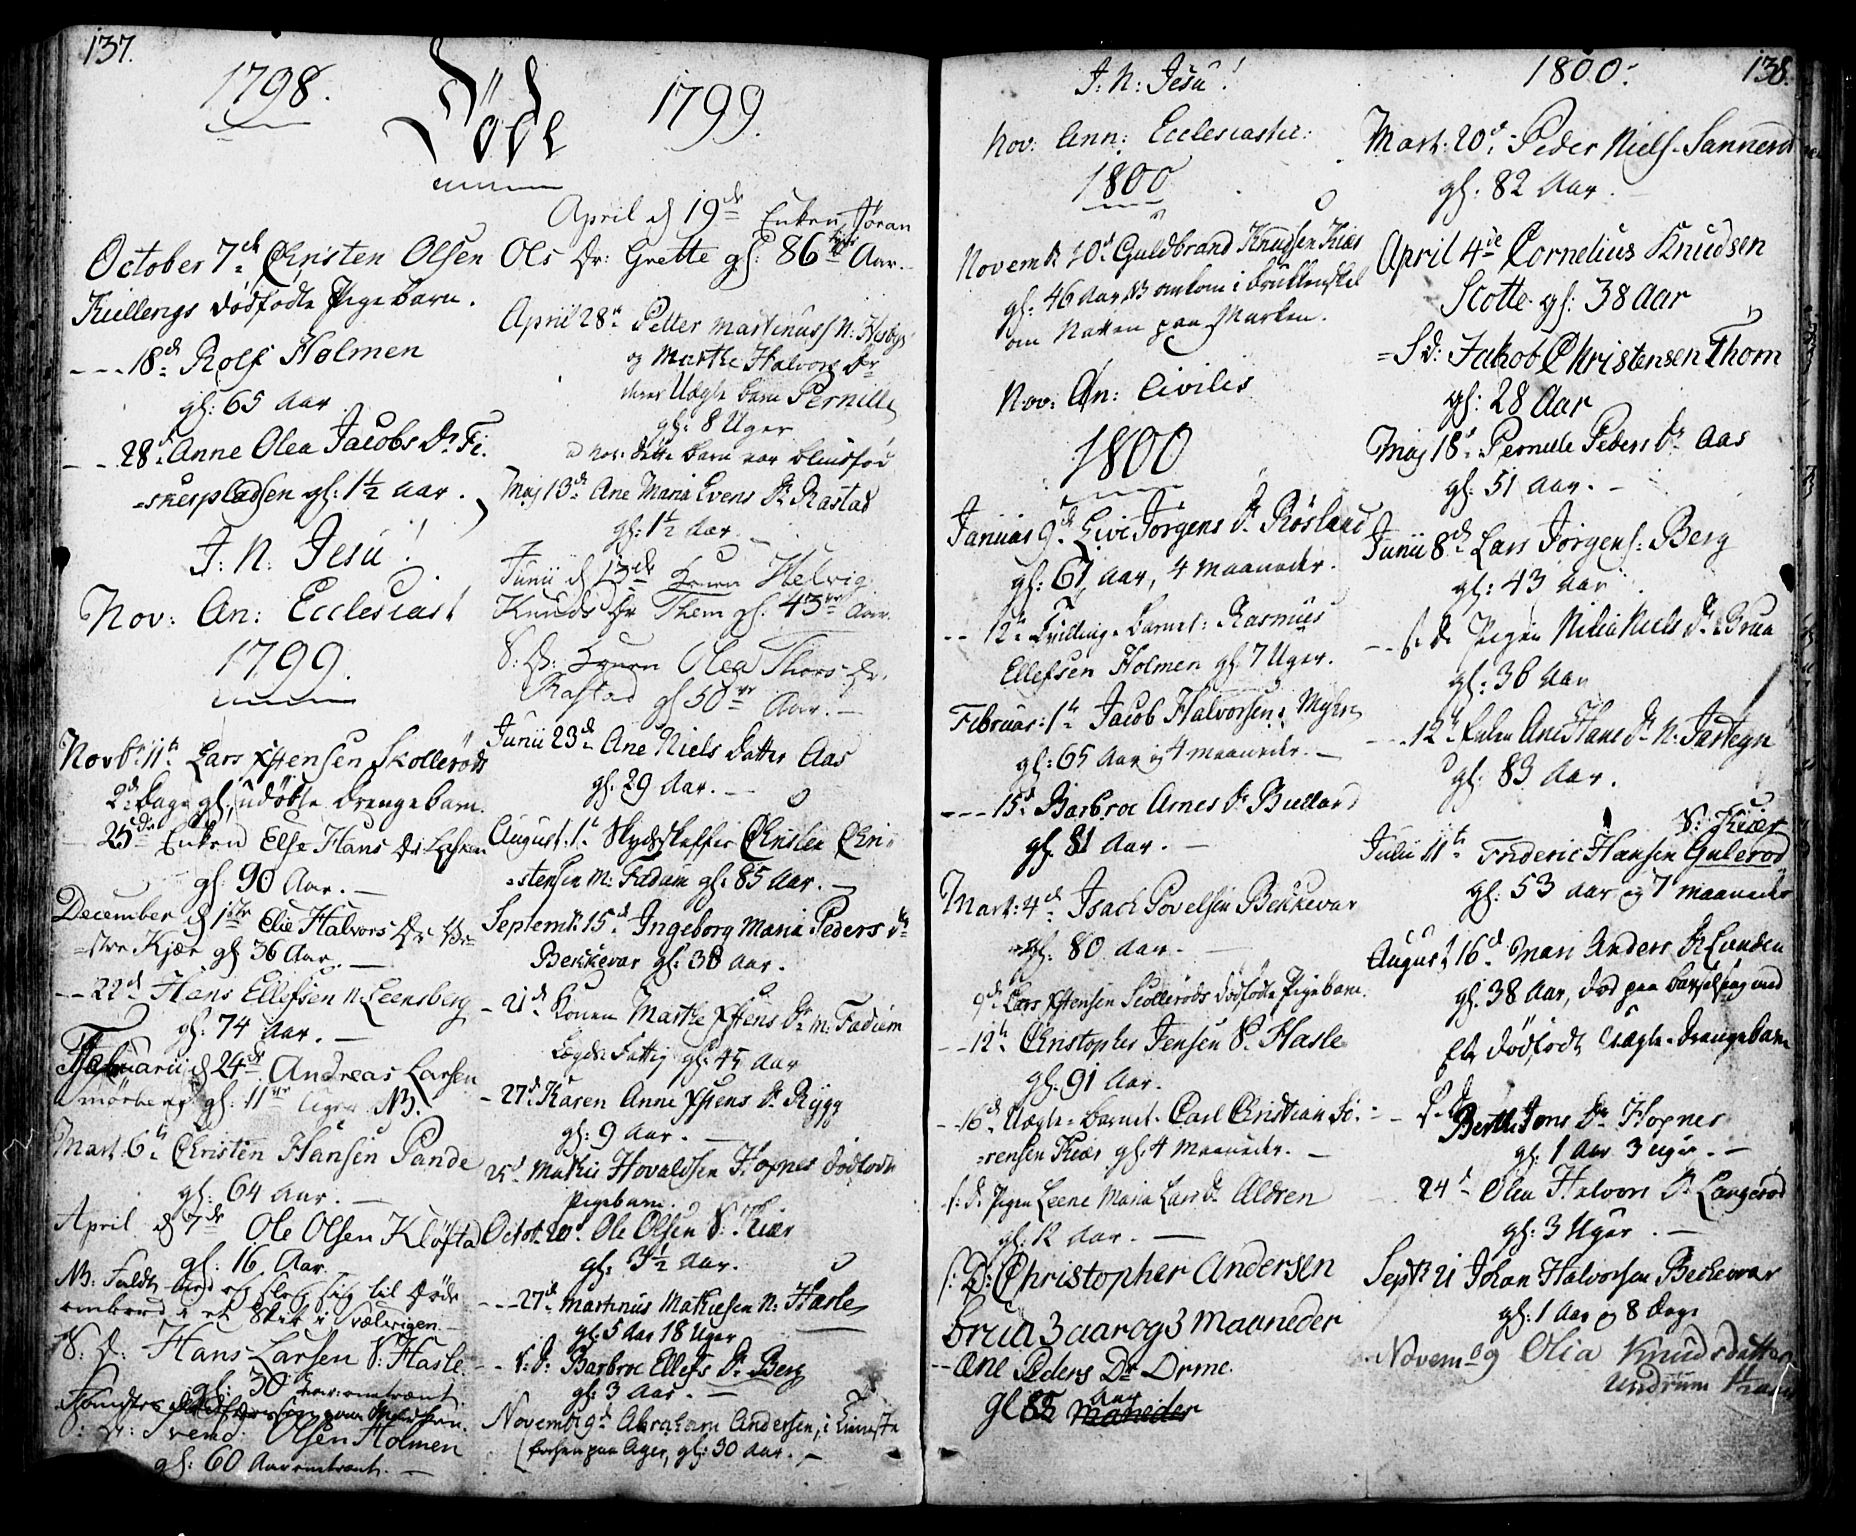 137.
1798.
Döde
1799.
October 7de Christen Olsen
Kullerigs dödfödte Pige barn.
- - - 18de Rolf Holmen
gl: 65 Aar
- - 28de Anne Olea Jacobs Dr Fi-
=skerpladsen gl: 1½ Aar.
J. N. Jesu!
Nov: An: Ecclesiast
1799.
Novbr 11te Lars Xstensen Skolleröds
2de Dage gl: udöbte Drengebarn.
25de Enken Else Hans Dr
gl: 90 Aar. —
December d 1ste Elie Halvors Dr
Kjær gl: 36 Aar. —
- - 22de Hans Ellefsen n: Leensberg
gl: 74 Aar. —
Februarii d 24de Andreas Larsen
Smörberg gl: 11 Uger NB.
Mart: 6te Christen Hansen Pande
gl: 64 Aar. —
April d 7de Ole Olsen Klöfta
gl: 16 Aar.
NB: Faldt ned og slog sig til Döde
ombord i et Skib i Svælvigen —
S: D: Hans Larsen S: Hasle
gl: 30 Aar omtrent
S: D: Svend Olsen Holmen
gl: 60 Aar omtrent. —
April d 19de Enken Jöran
Ols Dr: Grette gl: 86 Aar. —
April 28de Petter Martinuss N: Hesby
og Marthe Halvors Dr
deres Uægte barn Pernille
gl: 8 Uger
dette barn var blindfød
Maj 13de Ane Maria Evens Dr Rastad
gl: 1½ Aar —
Junii d 13de Konen Helvig
Knuds Dr Them gl: 43 Aar.
S: D: Konen Olea Thors Dr.
Rastad gl 50 Aar. —
Junii 23de Ane Niels Datter Aas
gl: 29 Aar. —
August: 1te Skydskaffer Christen Chri-
=stensen M: Fadum gl: 85 Aar. —
Septembr: 15de Ingeborg Maria Peders Dr
Bekkevar gl: 38 Aar.
- 21de Konen Marthe Xstens Dr m: Fadum
Lægds Fattig gl: 45 Aar
- 27de Karen Anne Xstens Dr Rygg
gl: 9 Aar. —
25de Mathis Hovaldsen Hopnes dödfödte
Pigebarn.
Octob: 20de Ole Olsen S: Kiær
gl: 3½ Aar.
- - - 27de Martinus Mathisen N: Hasle
gl: 5 Aar 18 Uger
- - S: D: Barbroe Ellefs Dr Berg
gl: 3 Aar. —
Novembr 9de Abraham Andersen,
paa Ager, gl: 30 Aar. —
138.
J: N: Jesu!
Nov: Ann: Ecclesiastic:
1800
Novembr 10de Guldbrand Knudsen Kiær
gl: 46 Aar, NB omkom i drukkenskab
om Natten paa Marken.
Nov: An: Civilis
1800
Januar 9de Live Jörgens Dr Rösland
gl: 67 Aar, 4 Maaneder.
- - 12te Tvilling-barnet: Rasmus
Ellefsen Holmen gl: 7 Uger.
Februar: 1te Jacob Halvorsen: Myhre
gl: 65 Aar og 4 Maaneder. —
- - - 15de Barbroe Arnes Dr Bulland
gl: 81 Aar. —
Mart: 4de Isach Povelsen Bekkevar
gl: 80 Aar. —
9de Lars Xstensen Scolleröds dödfödte Pigebarn.
- - 12te Christopher Jensen S: Hasle
gl: 91 Aar.
- - 16de Uægte-barnet Carl Christian Sö-
=rensen Kiær gl: 4 Maaneder. —
S: D: Pigen Leene Maria Lars Dr Aldren
gl: 12 Aar. —
S: D: Christopher Andersen
Brua 3 aar og 3 Maaneder
- - Ane Peders Dr Orme
gl 85 Aar Maaneder
1800.
Mart: 20de Peder Niels. Sannerød
gl: 82 Aar.
April 4de Cornelius Knudsen
Scotte gl: 38 Aar
= S D: Jakob Christensen Thom
gl: 28 Aar
Maj 18de Pernille Peders Dr Aas
gl: 51 Aar. —
Junii 8de Lars Jörgens: Berg
gl: 43 Aar
- - S. D. Pigen Niels Dr Brua
gl: 36 Aar
- - - 12te Enken Ane Hans Dr N: Jartegn
gl: 83 Aar.
S: Kiær
Julii 11te Frideric Hansen Gulerod
gl: 53 Aar og 7 Maaneder
August 16de Mari Anders Dr Lunden
gl: 38 Aar, död paa barselseng med
Et dödfödt Uægte-Drengebarn
- - S. D. Berthe Jons Dr Hopnes
gl: 1 Aar 3 uger. —
24de Olea Halvors Dr Langeröd
gl: 3 Uger. —
Septbr 21 Johan Halvorsen Beckevar
gl: 1 Aar og 8 Dage
Novem 9 Olia Knudsdatter
Undrum